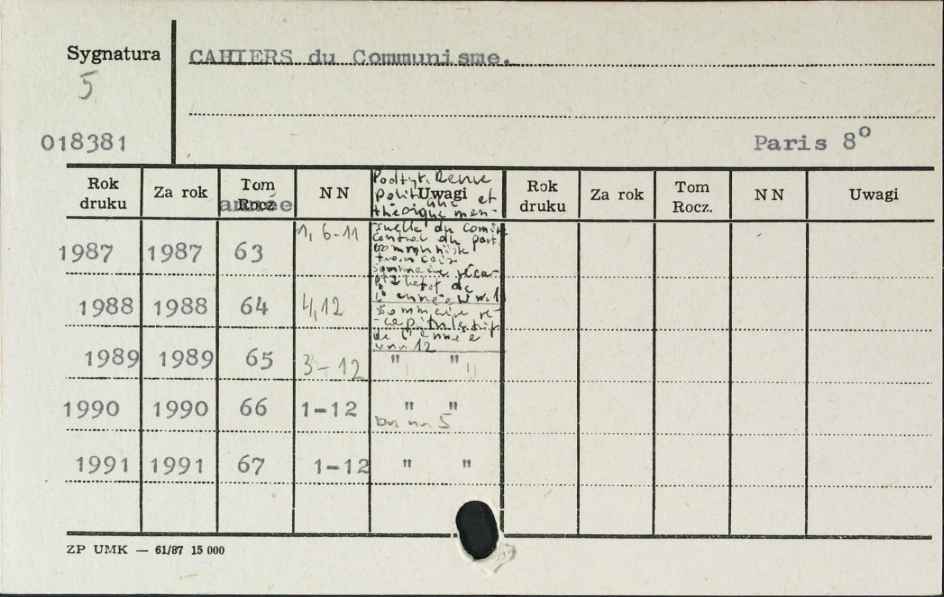 Sygnatura CAHIERS du Communisme.
5
018381 Paris 8º
Rok druku Za rok Tom Rocz. année NN Uwagi Rok druku Za rok Tom Rocz. NN Uwagi
Podtyt. Revue
politique et
théorique men-
suelle du comité
central du parti
communiste
français
1987 1987 63 1, 6-11
1988 1988 64 4,12
sommaire ré-
-capitulatif
de l'année
w nr 12
1989 1989 65 3-12 " "
1990 1990 66 1-12 " "
nr 5
1991 1991 67 1-12 " "
ZP UMK — 61/87 15 000